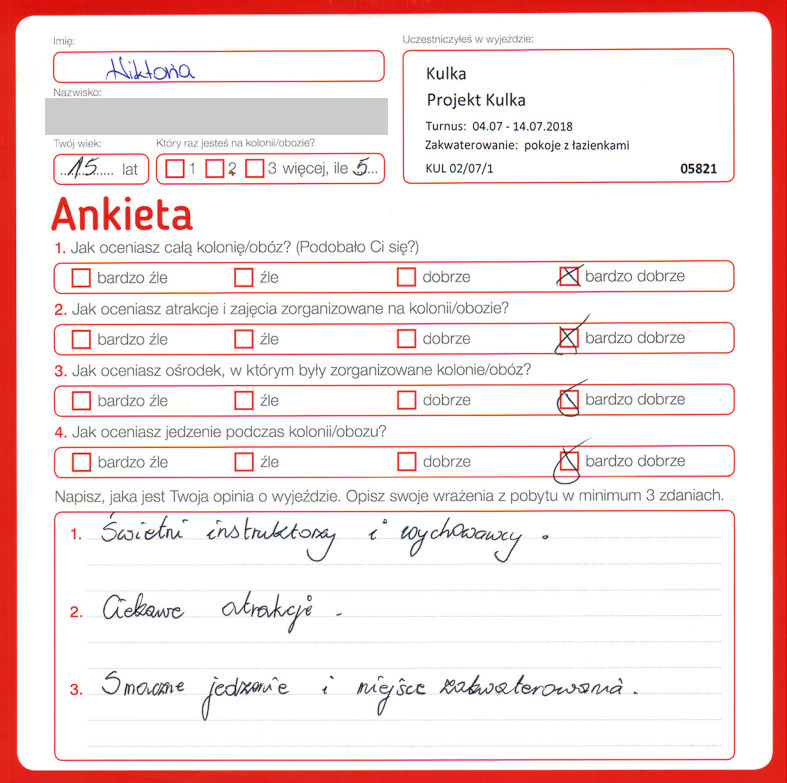 Imię:
Wiktoria
Nazwisko:
Twój wiek:
15 lat
Który raz jesteś na kolonii/obozie?
1 2 3 więcej, ile 5
Uczestniczyłeś w wyjeździe:
Kulka
Projekt Kulka
Turnus: 04.07 - 14.07.2018
Zakwaterowanie: pokoje z łazienkami
KUL 02/07/1 05821
Ankieta
1. Jak oceniasz całą kolonię/obóz? (Podobało Ci się?)
bardzo źle źle dobrze bardzo dobrze
2. Jak oceniasz atrakcje i zajęcia zorganizowane na kolonii/obozie?
bardzo źle źle dobrze bardzo dobrze
3. Jak oceniasz ośrodek, w którym były zorganizowane kolonie/obóz?
bardzo źle źle dobrze bardzo dobrze
4. Jak oceniasz jedzenie podczas kolonii/obozu?
bardzo źle źle dobrze bardzo dobrze
Napisz, jaka jest Twoja opinia o wyjeździe. Opisz swoje wrażenia z pobytu w minimum 3 zdaniach.
1. Świetni instruktorzy i wychowawcy.
2. Ciekawe atrakcje.
3. Smaczne jedzenie i miejsce zakwaterowania.